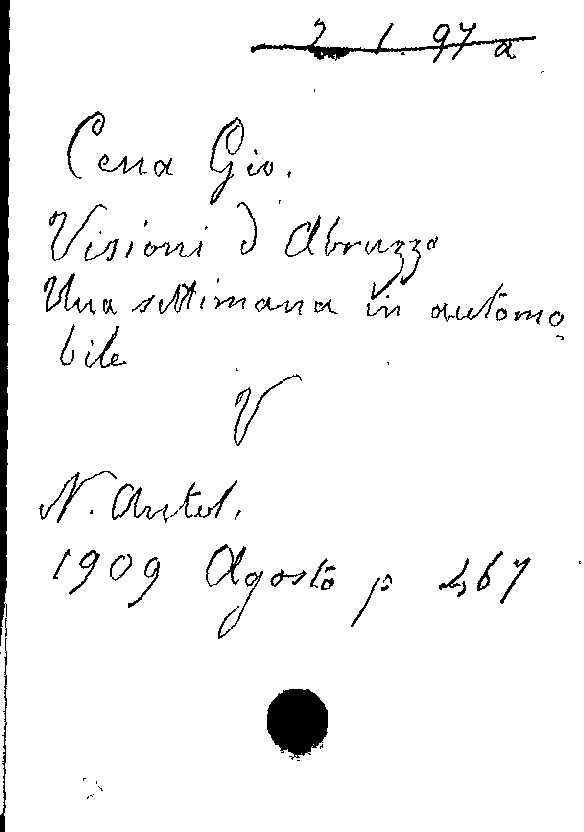 2 1. 97 a
Cena Gio.
Visioni d Abruzzo
Una settimana in automo
bile
V
N. Antol.
1909 Agosto p 467